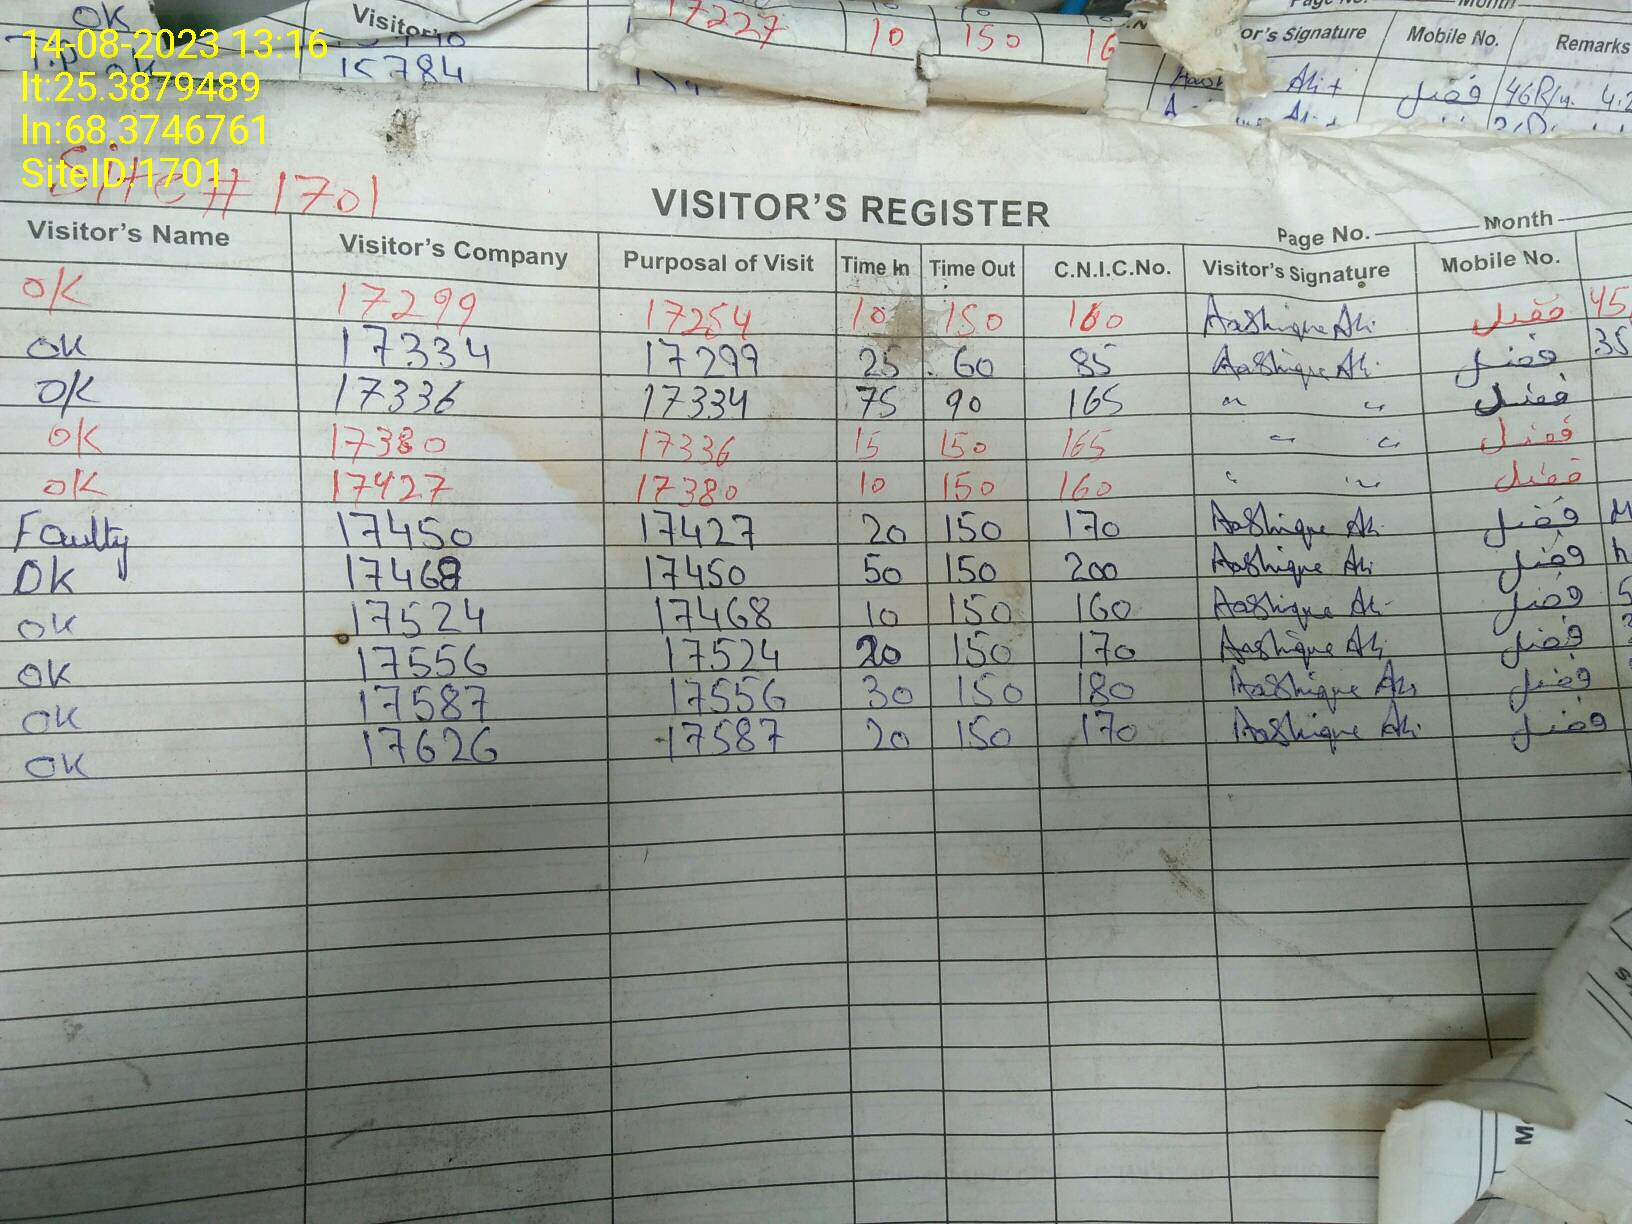 OK
Visitor's
15784
17227 10 150 16
or's Signature Mobile No. Remarks
Ali فضل 46
14-08-2023 13:16
lt:25.3879489
ln:68.3746761
SiteID:1701
Site # 1701
VISITOR'S REGISTER
Page No. Month
Visitor's Name Visitor's Company Purposal of Visit Time In Time Out C.N.I.C.No. Visitor's Signature Mobile No.
OK 17299 17254 10 150 160 Aashique Ali فضل 45
OK 17334 17299 25 60 85 Aashique Ali فضل 35
OK 17336 17334 75 90 165 " " فضل
OK 17380 17336 15 150 165 " " فضل
OK 17427 17380 10 150 160 " " فضل
Faulty 17450 17427 20 150 170 Aashique Ali فضل
OK 17468 17450 50 150 200 Aashique Ali فضل
OK 17524 17468 10 150 160 Aashique Ali فضل
OK 17556 17524 20 150 170 Aashique Ali فضل
OK 17587 17556 30 150 180 Aashique Ali فضل
OK 17626 17587 20 150 170 Aashique Ali فضل